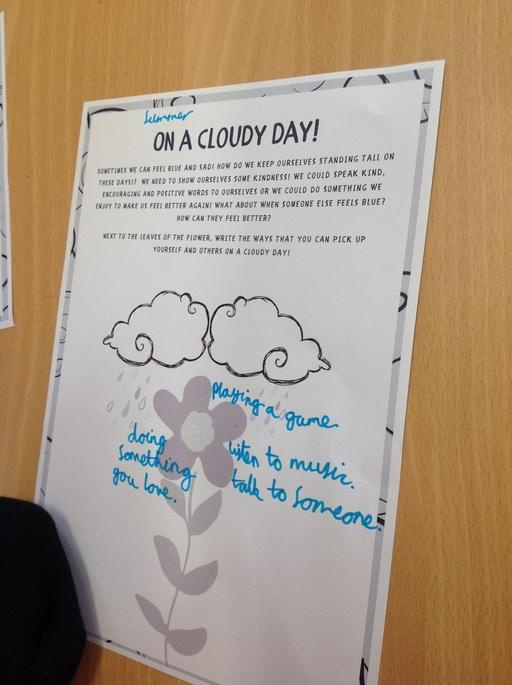 ON A CLOUDY DAY!
SOMETIMES WE CAN FEEL BLUE AND SAD! HOW DO WE KEEP OURSELVES STANDING TALL ON
THESE DAYS!? WE NEED TO SHOW OURSELVES SOME KINDNESS! WE COULD SPEAK KIND,
ENCOURAGING AND POSITIVE WORDS TO OURSELVES OR WE COULD DO SOMETHING WE
ENJOY TO MAKE US FEEL BETTER AGAIN! WHAT ABOUT WHEN SOMEONE ELSE FEELS BLUE?
HOW CAN THEY FEEL BETTER?
NEXT TO THE LEAVES OF THE FLOWER, WRITE THE WAYS THAT YOU CAN PICK UP
YOURSELF AND OTHERS ON A CLOUDY DAY!
Playing a game
doing
something
you love.
listen to music.
talk to someone.